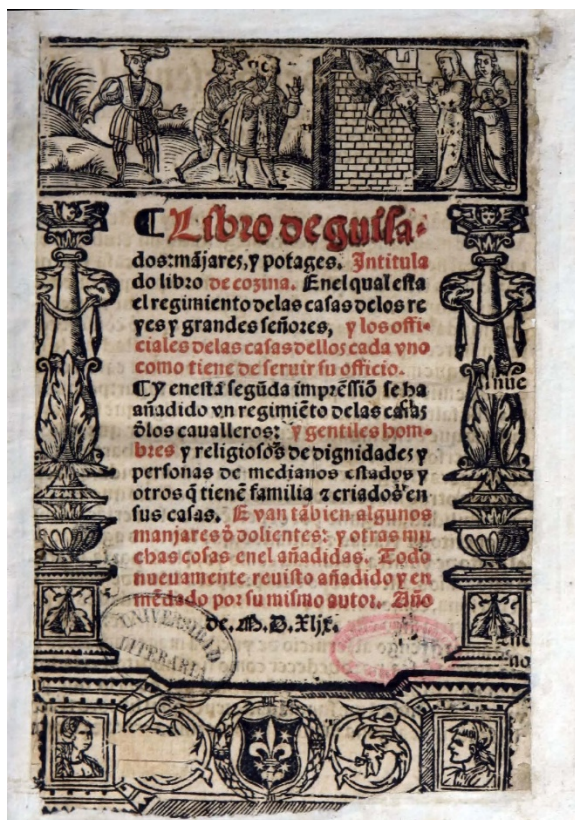 ¶ Libro de guisa-
dos: mãjares, y potages. Intitula
do libro de cozina. Enel qual esta
el regimiento delas casas delos re
yes y grandes señores, y los offi-
ciales delas casas dellos cada vno
como tiene de seruir su officio.
¶ Y enesta segũda impressiõ se ha
añadido vn regimiẽto delas casas
d̃los caualleros: y gentiles hom-
bres y religiosos de dignidades y
personas de medianos estados y
otros q̃ tienẽ familia ⁊ criados en
sus casas. E van tãbien algunos
manjares d̃ dolientes: y otras mu
chas cosas enel añadidas. Todo
nueuamente reuisto añadido y en
mẽdado por su mismo autor. Año
de. M. D. Xljx.
UNIVERSIDAD
LITERARIA